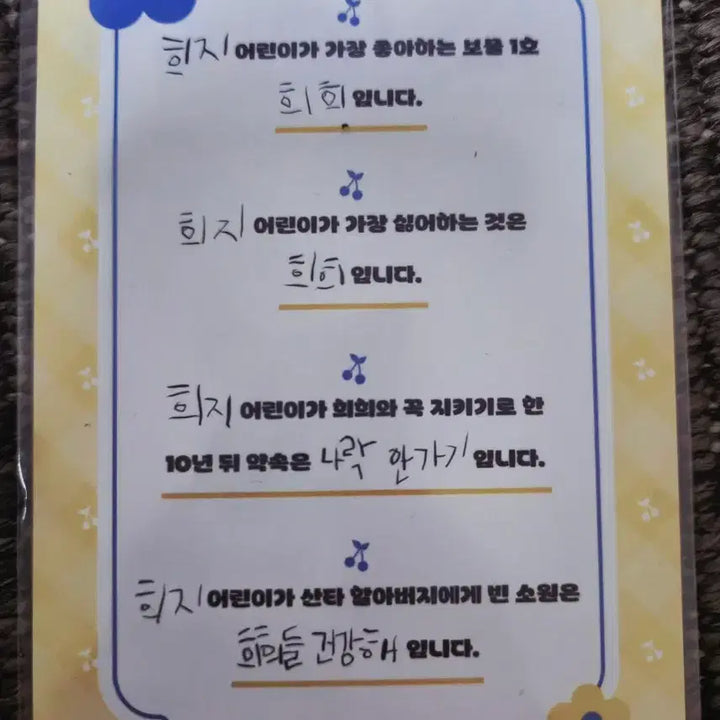 희지 어린이가 가장 좋아하는 보물 1호
희희 입니다.
희지 어린이가 가장 싫어하는 것은
희희 입니다.
희지 어린이가 희희와 꼭 지키기로 한
10년 뒤 약속은 나락 안가기 입니다.
희지 어린이가 산타 할아버지에게 빈 소원은
희희들 건강해 입니다.